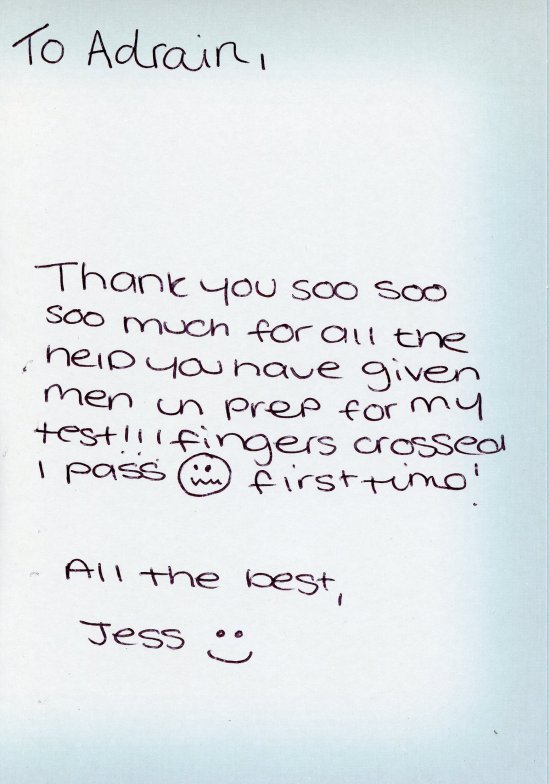 To Adrain,
Thank you soo soo
soo much for all the
help you have given
men in prep for my
test!!! fingers crossed
I pass first time!
All the best,
Jess